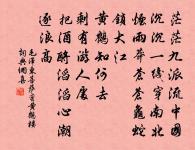 茫茫九派流中國
沉沉一綫穿南北
煙雨莽蒼蒼龜蛇
鎖大江
黃鶴知何去
剩有游人處
把酒酹滔滔心潮
逐浪高
毛澤東菩薩蠻黃鶴樓
詞典網